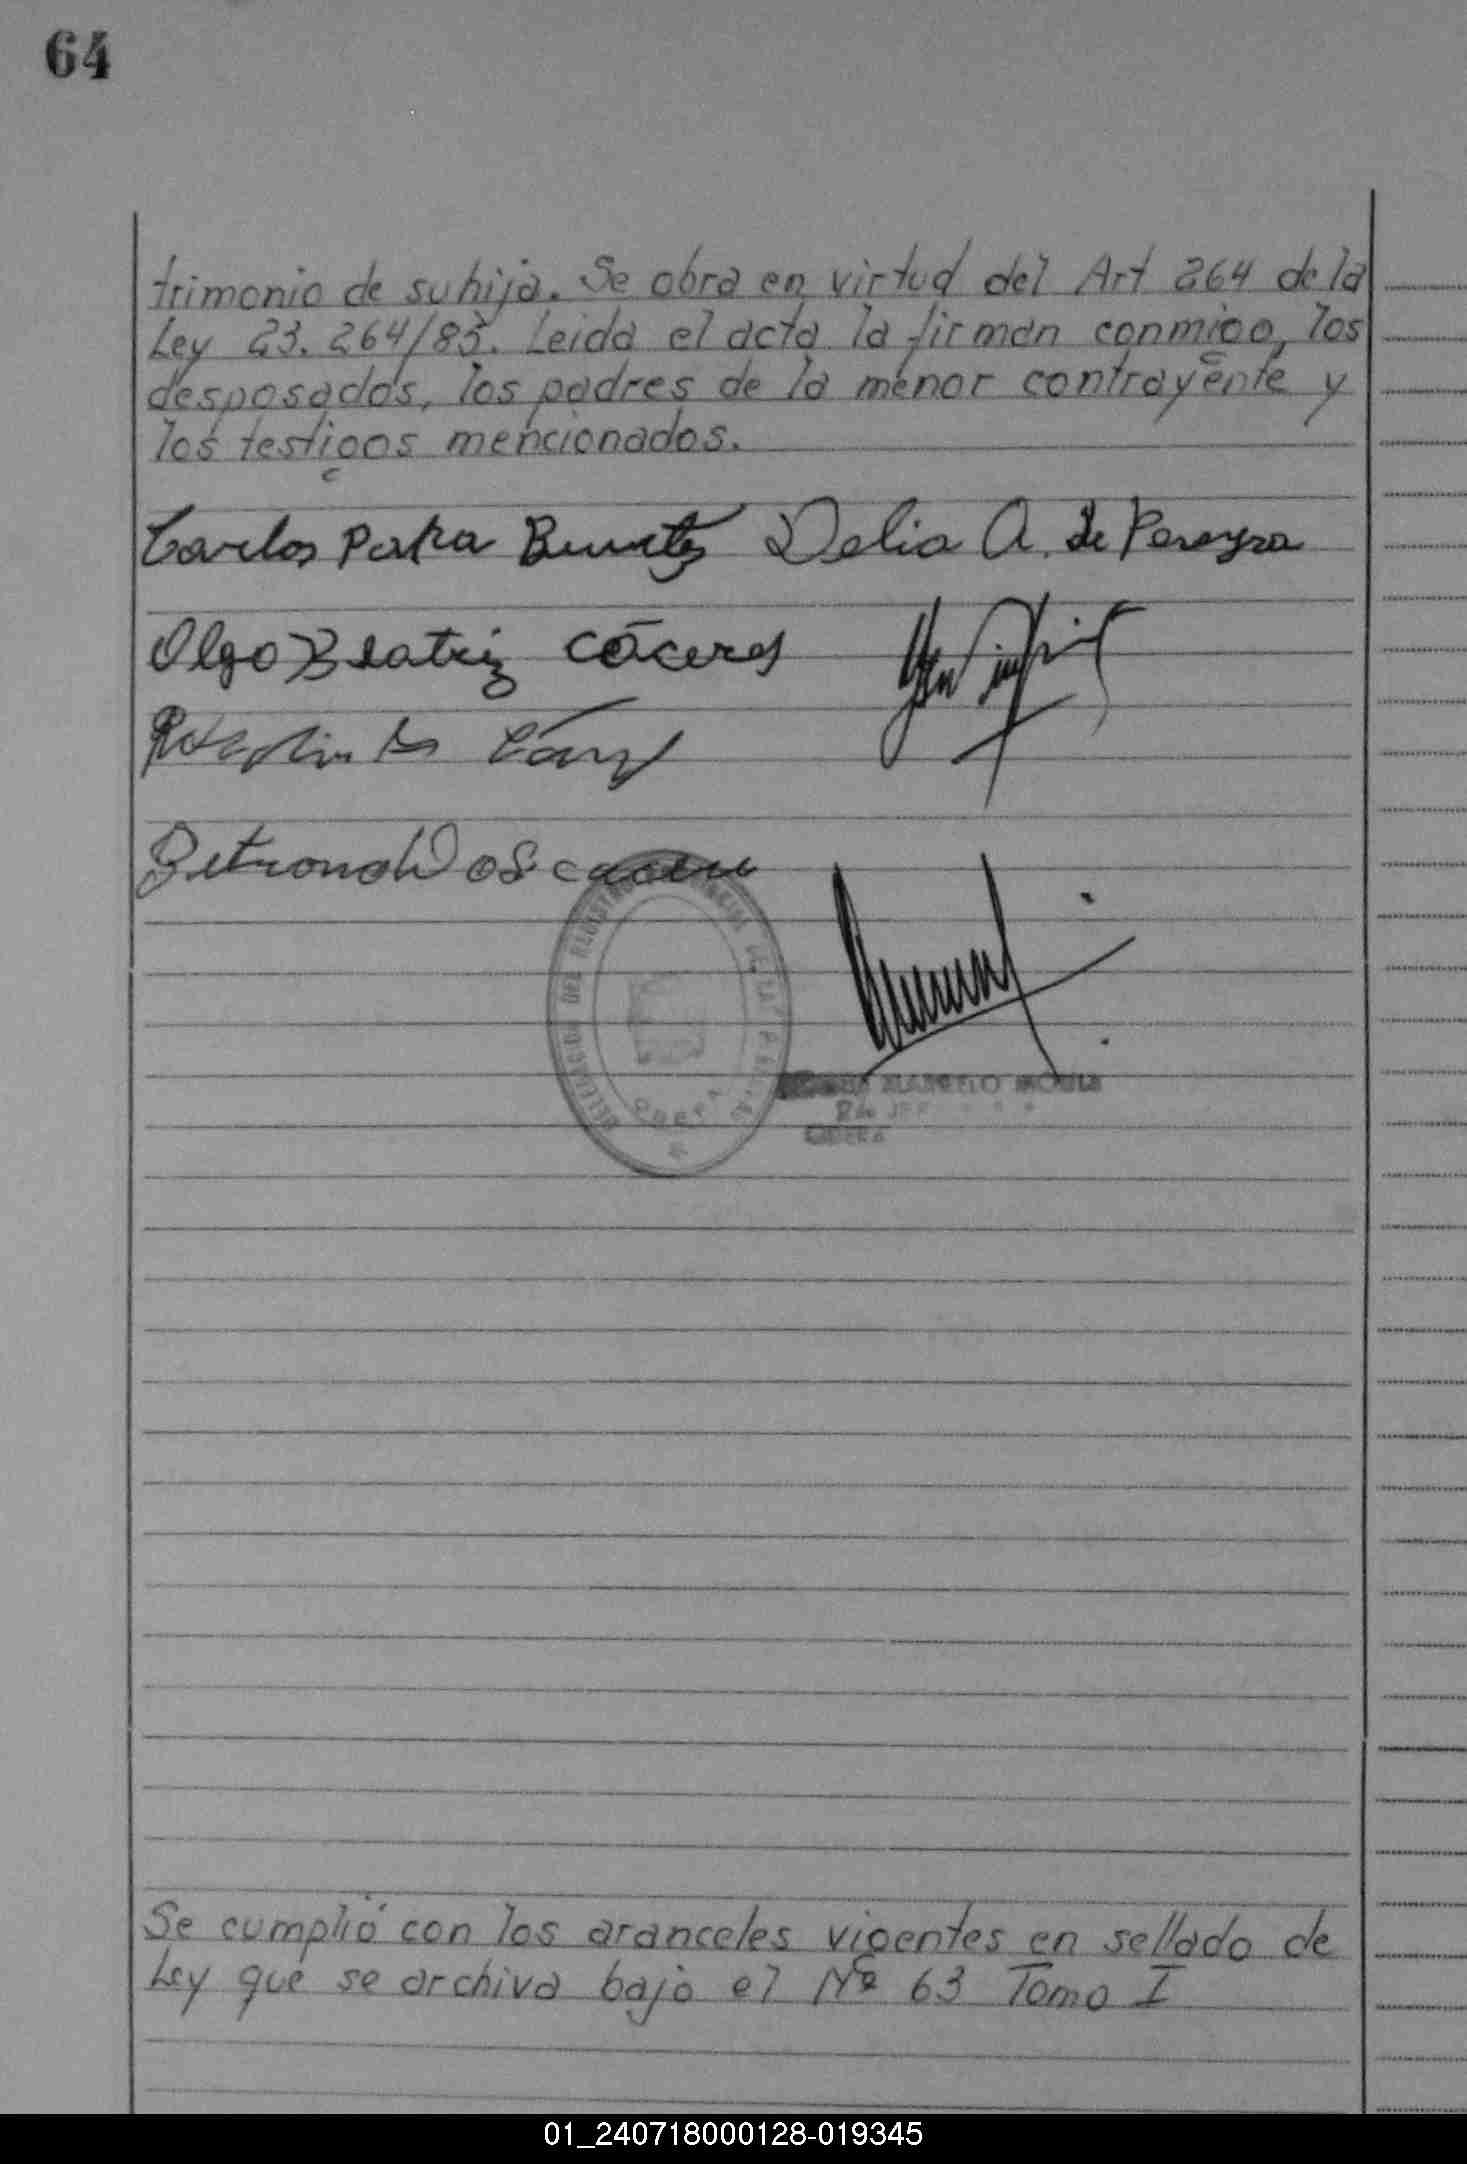 64
trimonio de su hija. Se obra en virtud del Art 264 de la
Ley 23.264/85. Leida el acta la firman conmigo, los
desposados, los padres de la menor contrayente y
los testigos mencionados.
Carlos Benitez Delia A. de Pereyra
Olga Beatriz Cáceres
DELEGACION DEL REGISTRO PROVINCIAL DE LAS P
OBERA
MARCELO
OBERA
Se cumplió con los aranceles vigentes en sellado de
Ley que se archiva bajo el Nº 63 Tomo I
01_240718000128-019345